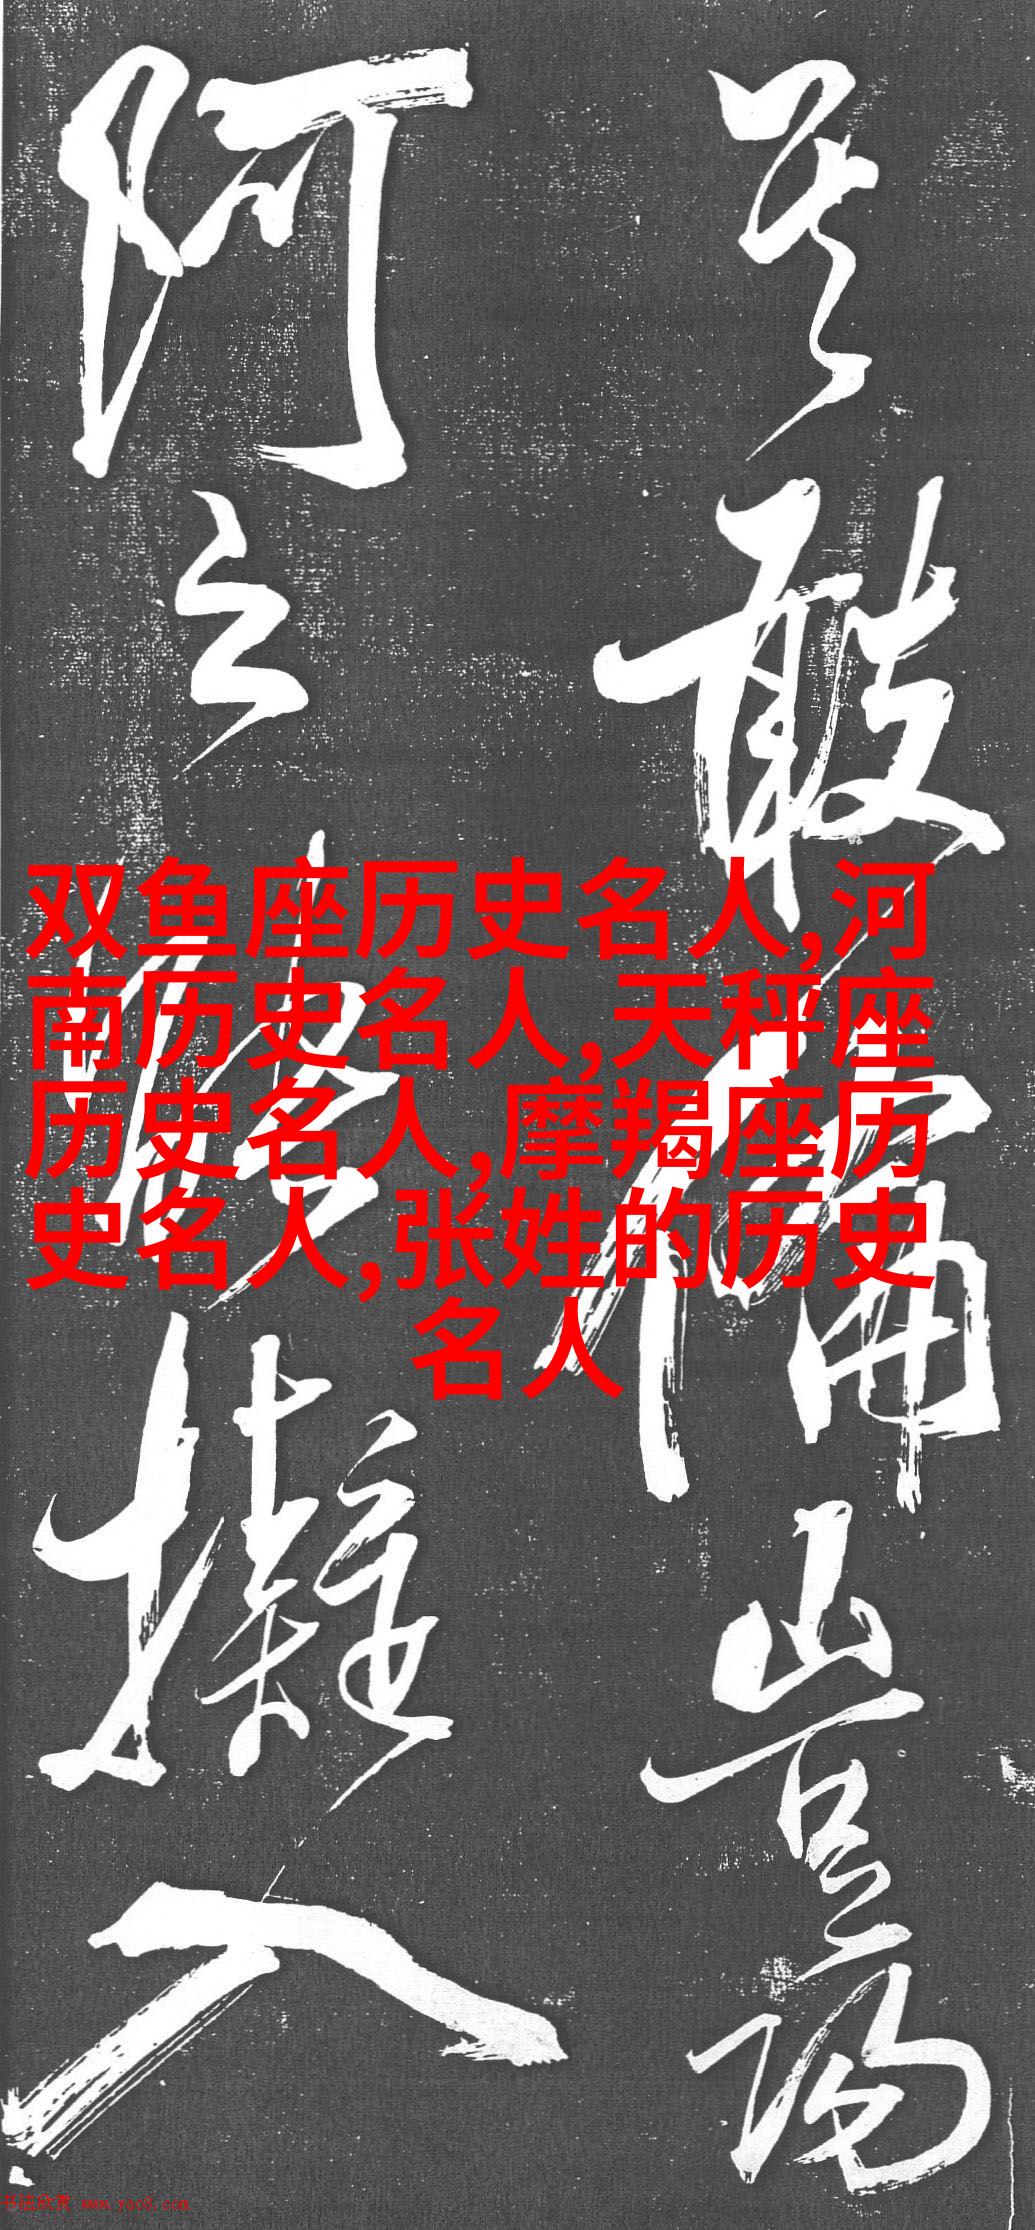 双鱼座历史名人,河
南历史名人,天秤座
历史名人,摩羯座历
史名人,张姓的历史
名人
敢 豈
阿之 擬入
书法欣赏 www.yac8.com